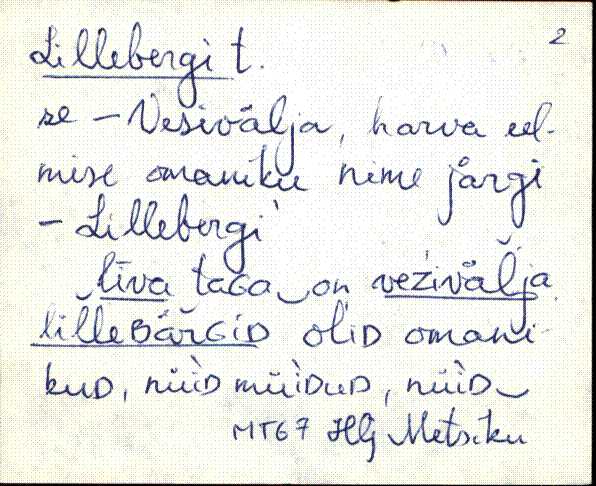 2
Lillebergi t.
se – Vesivälja, harva eel-
mise omaniku nime järgi
– Lillebergi
līva taGa on vezivälja
lilleBärGiD oliD omani-
kuD, nüiD müiDuD, nüiD
MT67 Hlj Metsiku